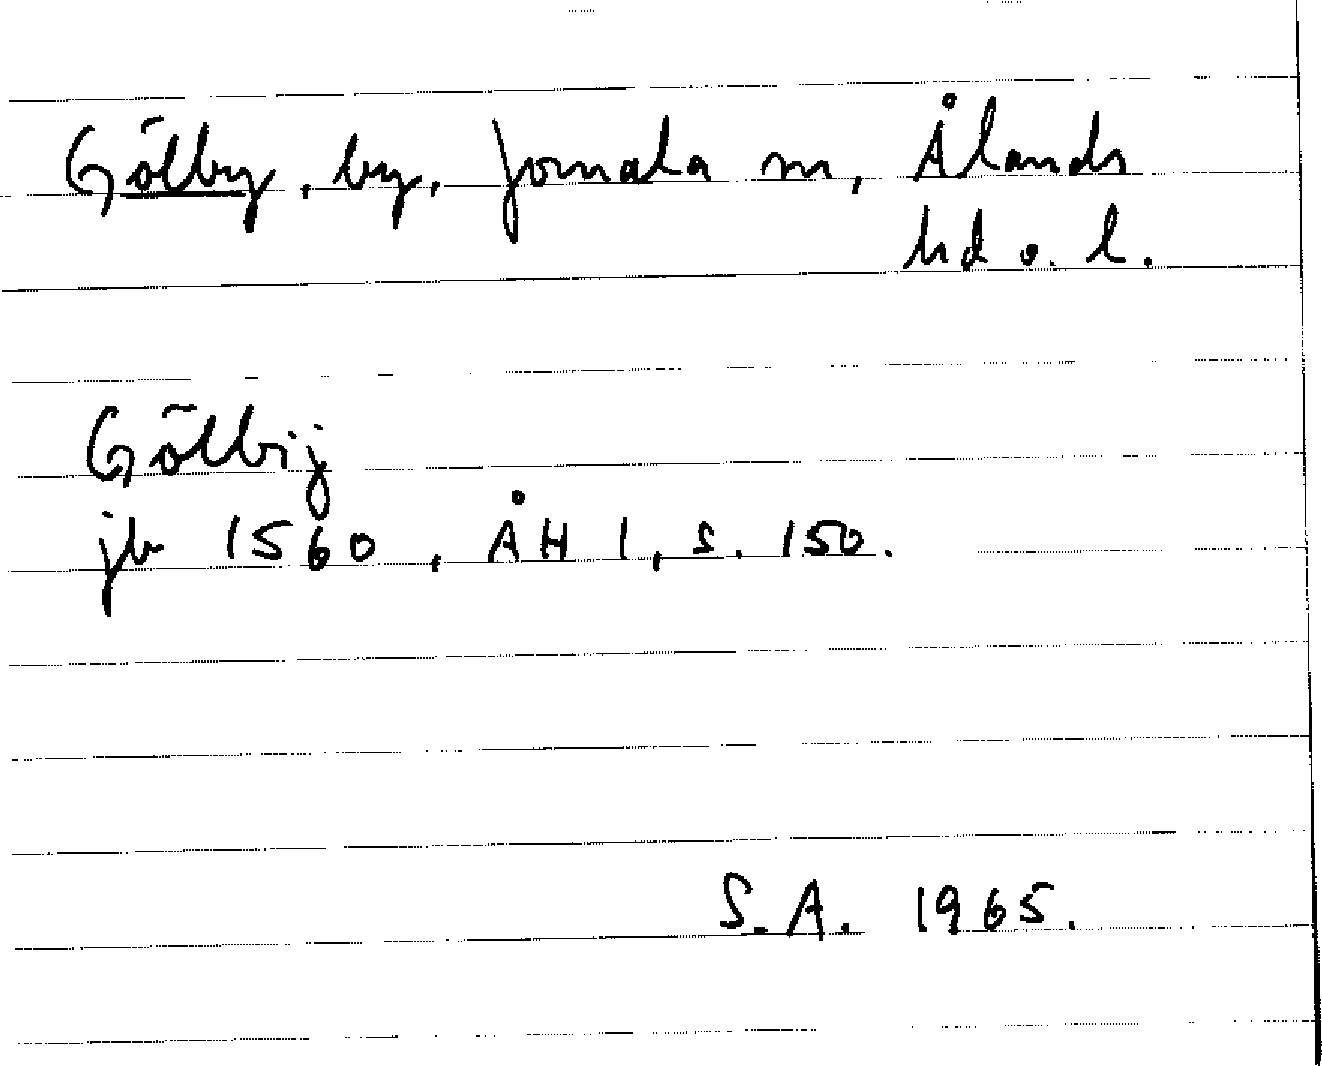 Gölby, by, Jomala sn, Ålands
hd o. l.
Gölbij
jb 1560, ÅH 1, s. 150.
S.A. 1965.